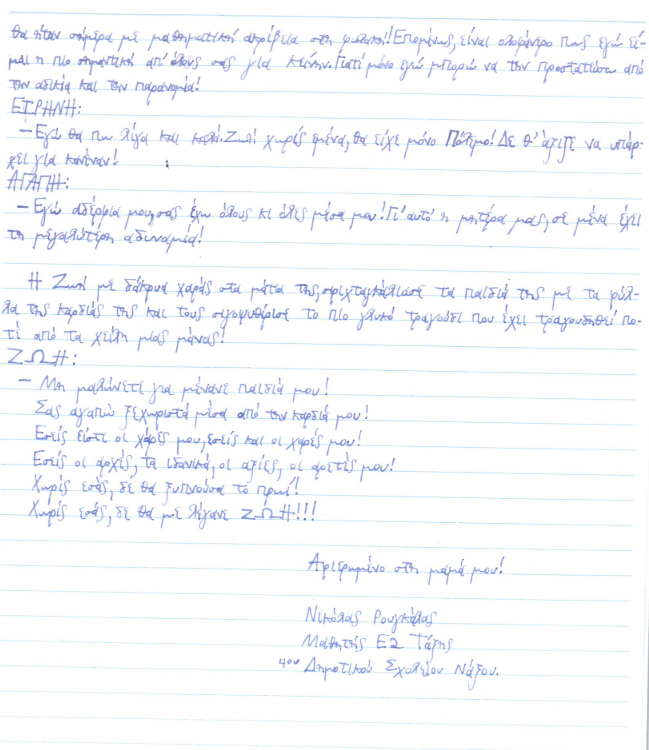 θα ήταν σήμερα με μαθηματική ακρίβεια στη φυλακή! Επομένως, είναι ολοφάνερο πως εγώ εί-
μαι η πιο σημαντική απ' όλους σας για κείνην. Γιατί μόνο εγώ μπορώ να την προστατεύσω από
την αδικία και την παρανομία!
ΕΙΡΗΝΗ:
– Εγώ θα πω λίγα και καλά. Ζωή χωρίς εμένα, θα είχε μόνο Πόλεμο! Δε θ' άξιζε να υπάρ-
χει για κανέναν!
ΑΓΑΠΗ:
– Εγώ αδέρφια μου, σας έχω όλους κι όλες μέσα μου! Γι' αυτό η μητέρα μας, σε μένα έχει
τη μεγαλύτερη αδυναμία!
Η Ζωή με δάκρυα χαράς στα μάτια της, σφιχταγκάλιασε τα παιδιά της με τα φύλ-
λα της καρδιάς της και τους σιγοψυθίρισε το πιο γλυκό τραγούδι που έχει τραγουδηθεί πο-
τέ από τα χείλη μίας μάνας!
ΖΩΗ:
– Μη μαλώνετε για μένανε παιδιά μου!
Σας αγαπώ ξεχωριστά μέσα από την καρδιά μου!
Εσείς είστε οι χάρες μου, εσείς και οι χαρές μου!
Εσείς οι αρχές, τα ιδανικά, οι αξίες, οι αρετές μου!
Χωρίς εσάς, δέ θα ξυπνούσα το πρωί!
Χωρίς εσάς, δε θα με λέγανε ΖΩΗ!!!
Αφιερωμένο στη μαμά μου!
Νικόλας Ρουγκάλας
Μαθητής Ε2 Τάξης
4ου Δημοτικού Σχολείου Νάξου.